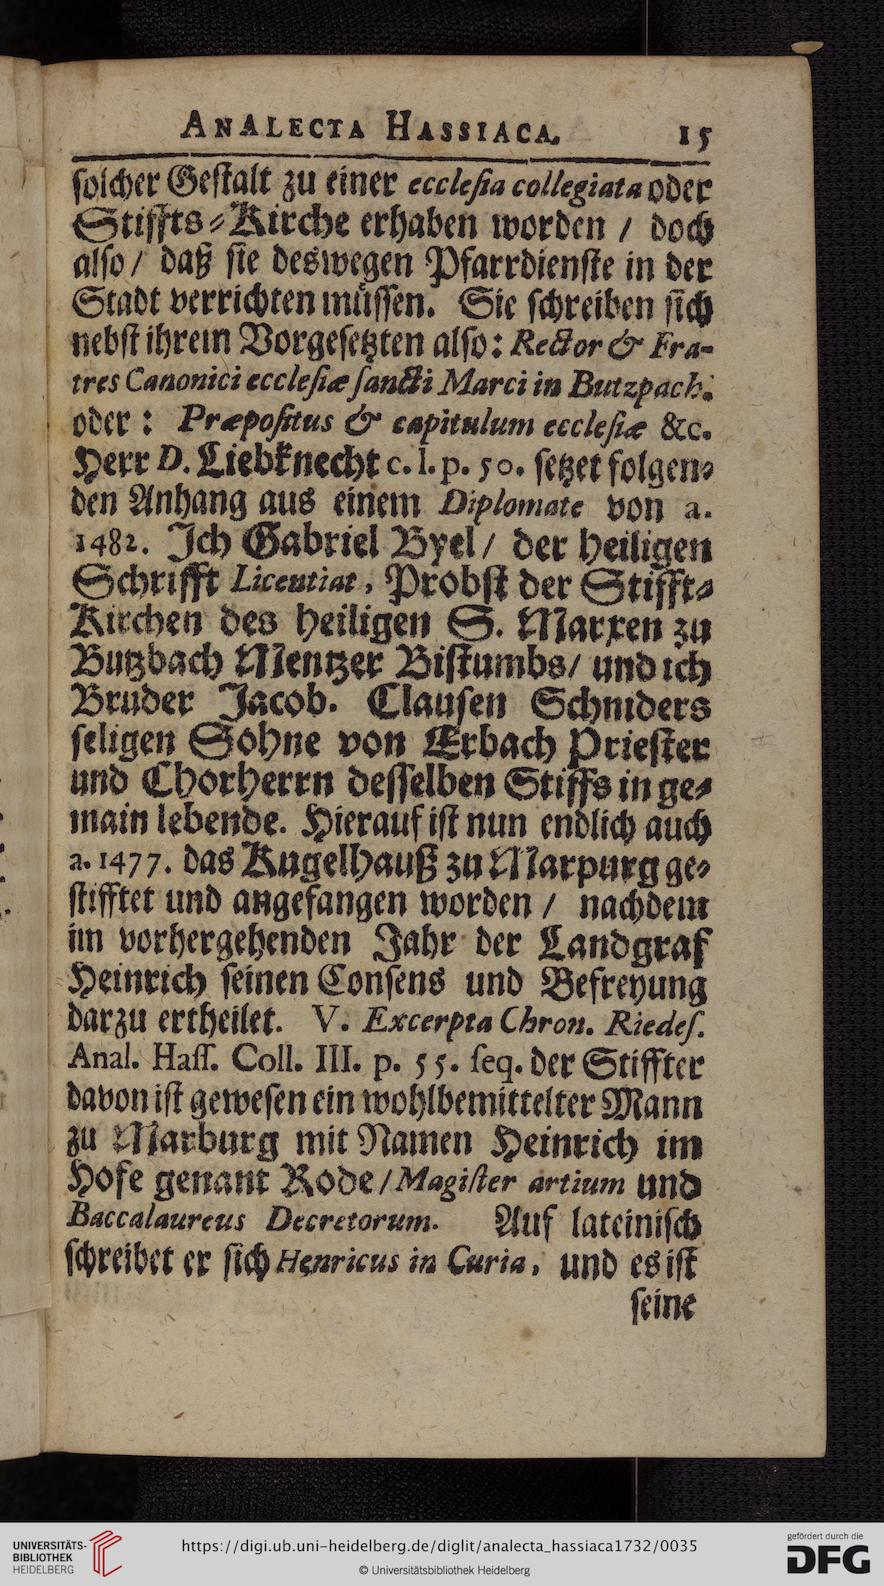 ANALECTA HASSIACA. 15
ſolcher Geſtalt zu einer eccleſia collegiata oder
Stiffts-Kirche erhaben worden / doch
alſo / daß ſie deswegen Pfarrdienſte in der
Stadt verrichten müſſen. Sie ſchreiben ſich
nebſt ihrem Vorgeſetzten alſo: Rector & Fra-
tres Canonici eccleſiæ ſancti Marci in Butzpach.
oder: Præpoſitus & capitulum eccleſiæ &c.
Herr D. Liebknecht c. l. p. 50. ſetzet folgen-
den Anhang aus einem Diplomate von a.
1482. Ich Gabriel Byel / der heiligen
Schrifft Licentiat, Probſt der Stifft-
Kirchen des heiligen S. Marxen zu
Butzbach Mentzer Biſtumbs / und ich
Bruder Jacob. Clauſen Schniders
ſeligen Sohne von Erbach Prieſter
und Chorherrn deſſelben Stiffs in ge-
main lebende. Hierauf iſt nun endlich auch
a. 1477. das Kugelhauß zu Marpurg ge-
ſtifftet und angefangen worden / nachdem
im vorhergehenden Jahr der Landgraf
Heinrich ſeinen Conſens und Befreyung
darzu ertheilet. V. Excerpta Chron. Riedeſ.
Anal. Haſſ. Coll. III. p. 55. ſeq. der Stiffter
davon iſt geweſen ein wohlbemittelter Mann
zu Marburg mit Namen Heinrich im
Hofe genant Rode / Magiſter artium und
Baccalaureus Decretorum. Auf lateiniſch
ſchreibet er ſich Henricus in Curia, und es iſt
ſeine
UNIVERSITÄTS-
BIBLIOTHEK
HEIDELBERG
https://digi.ub.uni-heidelberg.de/diglit/analecta_hassiaca1732/0035
© Universitätsbibliothek Heidelberg
gefördert durch die
DFG